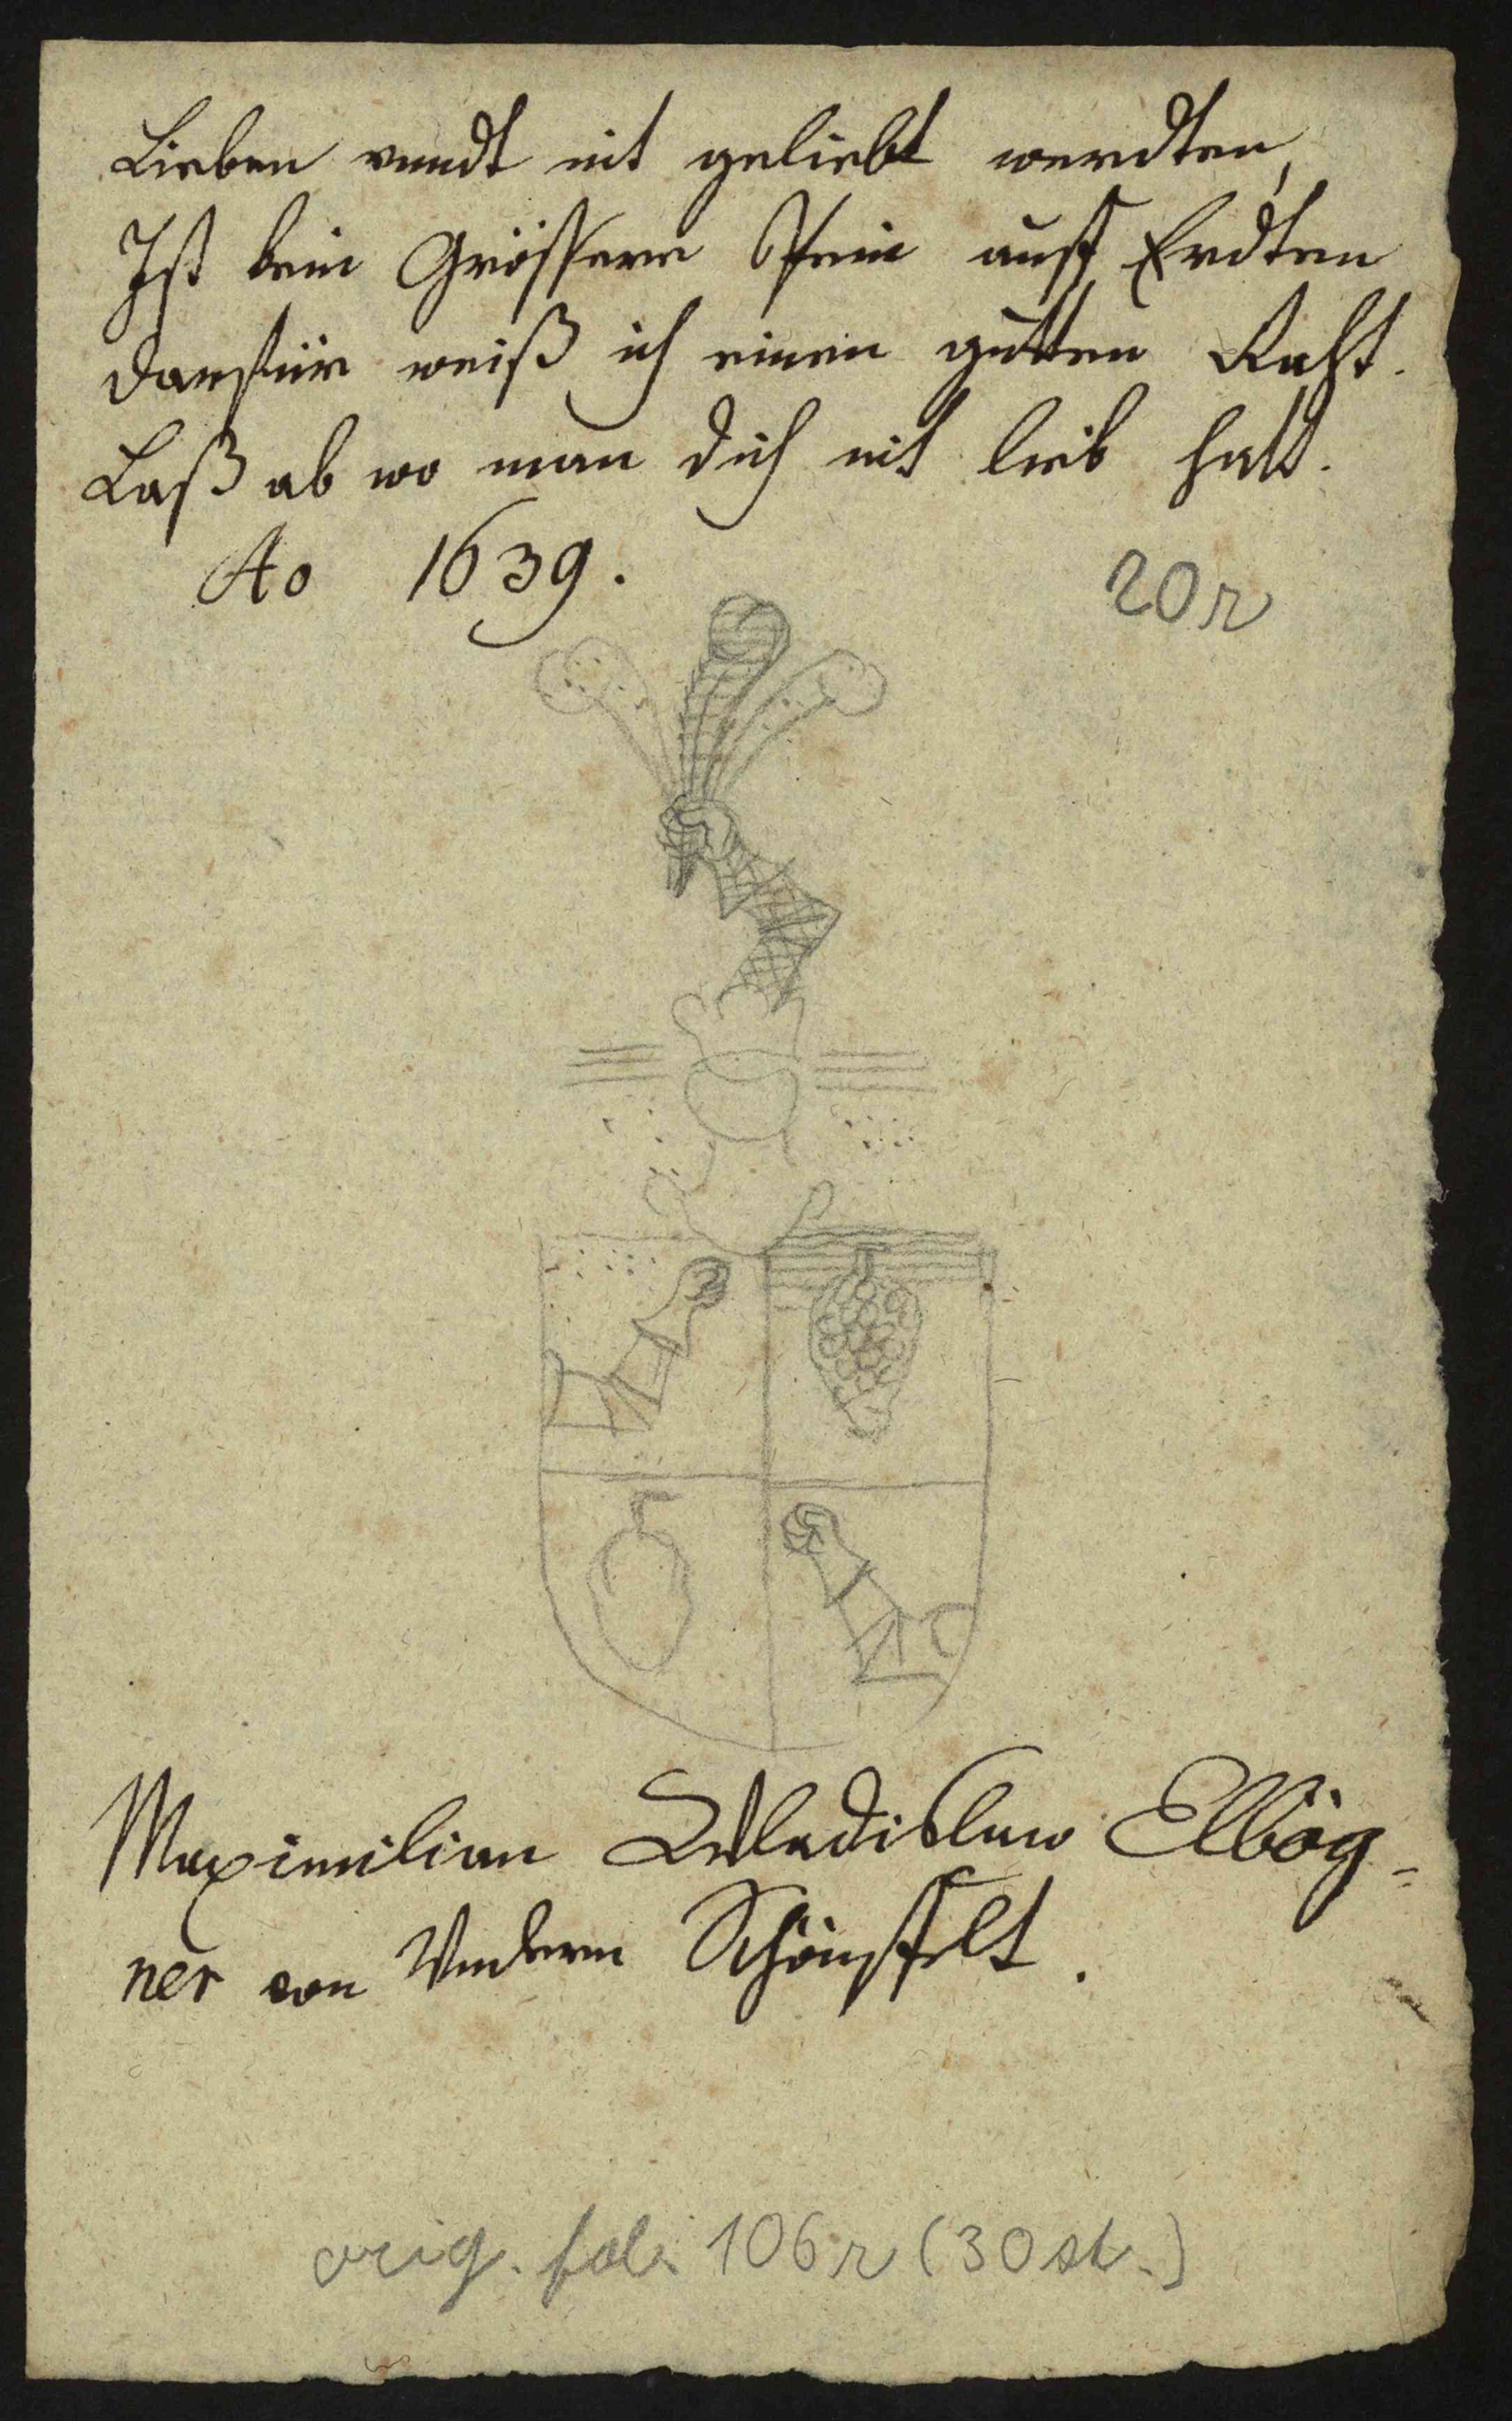 Lieben vundt nit geliebt werdten,
Ist kein Grössere Pein auff Erdten
Darfür weiß ich einen gutten Raht.
Laß ab wo man dich nit lieb hatt.
Ao 1639.
20r
Maximilian Wladislaw Elbög=
ner von Vndern Schönffelt.
orig. fol. 106r (30 st.)